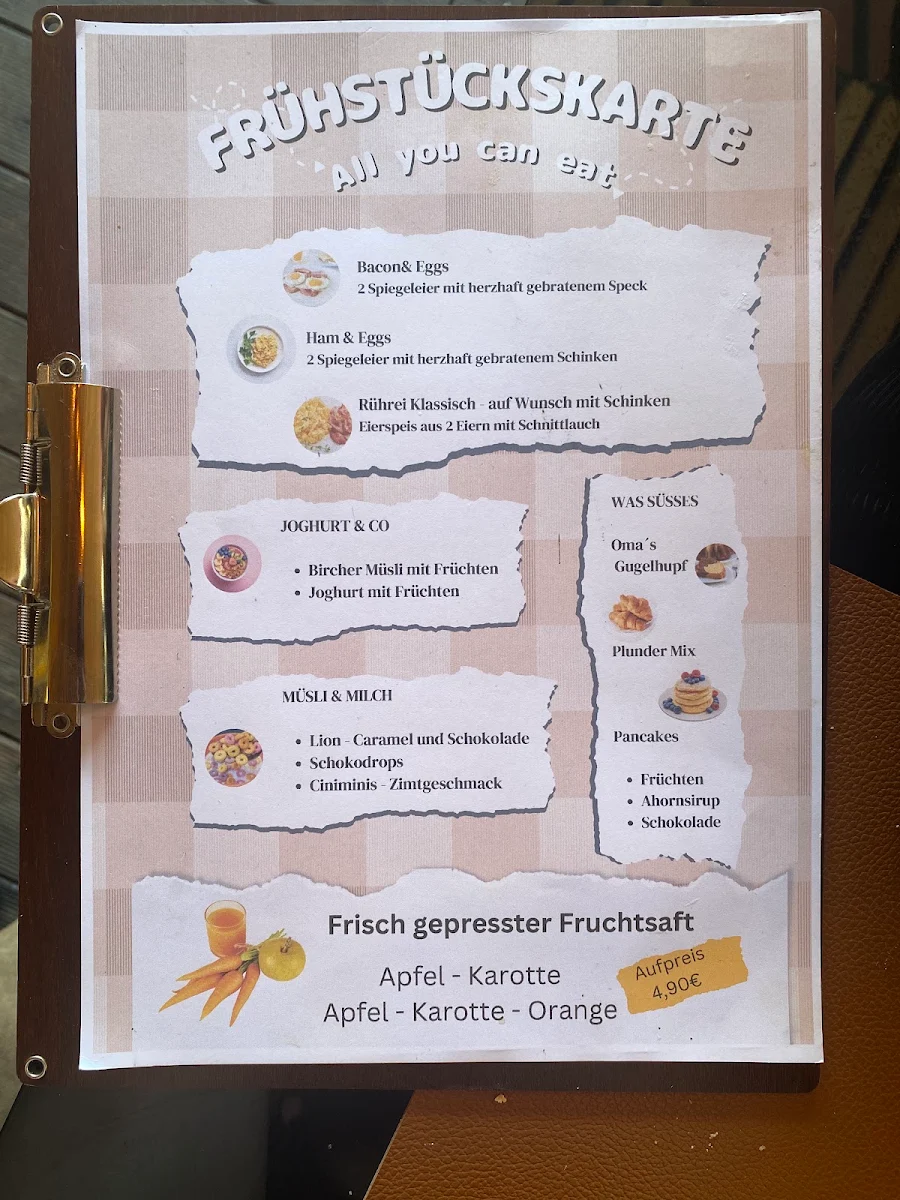 FRÜHSTÜCKSKARTE
All you can eat
Bacon& Eggs
2 Spiegeleier mit herzhaft gebratenem Speck
Ham & Eggs
2 Spiegeleier mit herzhaft gebratenem Schinken
Rührei Klassisch - auf Wunsch mit Schinken
Eierspeis aus 2 Eiern mit Schnittlauch
JOGHURT & CO
• Bircher Müsli mit Früchten
• Joghurt mit Früchten
MÜSLI & MILCH
• Lion - Caramel und Schokolade
• Schokodrops
• Ciniminis - Zimtgeschmack
WAS SÜSSES
Oma´s
Gugelhupf
Plunder Mix
Pancakes
• Früchten
• Ahornsirup
• Schokolade
Frisch gepresster Fruchtsaft
Apfel - Karotte
Apfel - Karotte - Orange
Aufpreis
4,90€